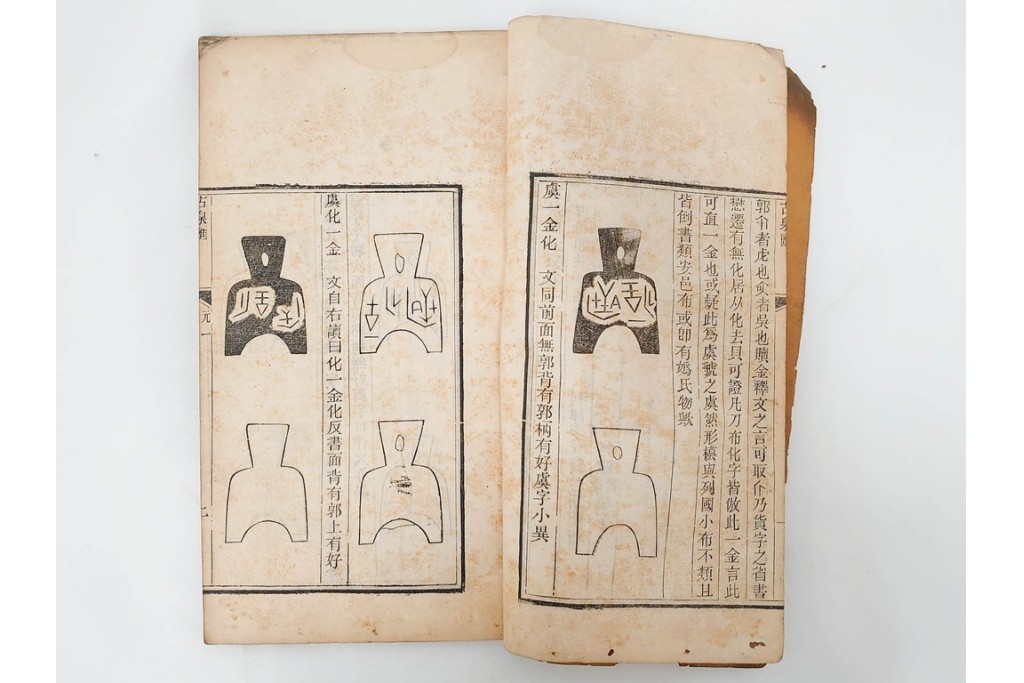 郭介者虎也俞者吳也贖金釋文之言可取仆乃貨字之省書
懋遷有無化居从化去貝可證凡刀布化字皆倣此一金言此
可直一金也或疑此為虞虢之虞然形模與列國小布不類且
皆倒書類安邑布或卽有媯氏物歟
虞一金化 文同前面無郭背有郭柄有好虞字小異
虞化一金 文自右讀曰化一金化反書面背有郭上有好
古泉匯
元一